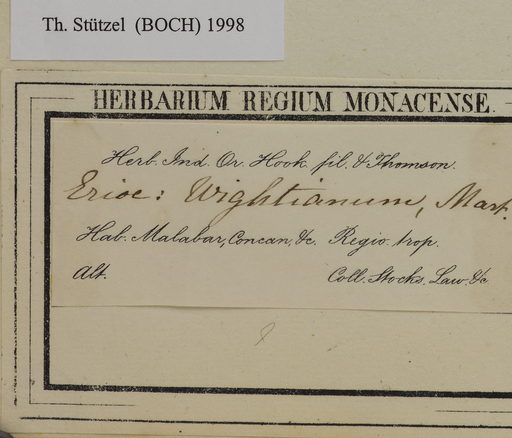 Th. Stützel (BOCH) 1998
HERBARIUM REGIUM MONACENSE.
Herb. Ind. Or. Hook. fil. & Thomson.
Erioc: Wightianum, Mart.
Hab. Malabar, Concan, &c. Regio. trop.
Alt. Coll. Stocks, Law. &c